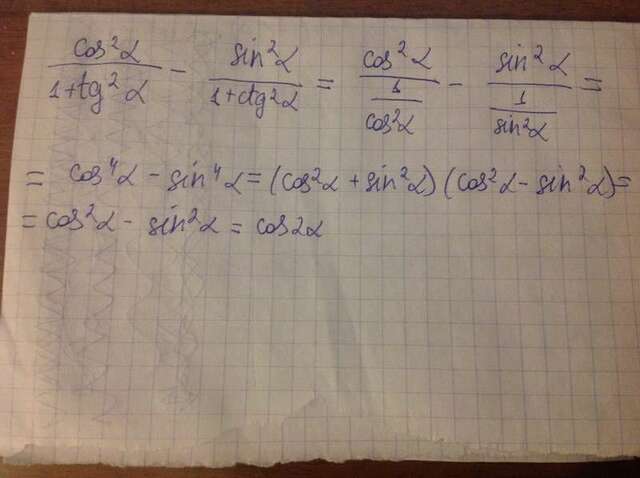 cos²α/(1+tg²α) − sin²α/(1+ctg²α) = cos²α/(1/cos²α) − sin²α/(1/sin²α) =
= cos⁴α − sin⁴α = (cos²α + sin²α)(cos²α − sin²α) =
= cos²α − sin²α = cos2α